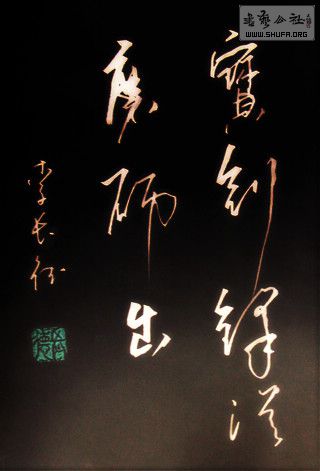 書藝公社
WWW.SHUFA.ORG
寶劍鋒從
磨砺出
李长